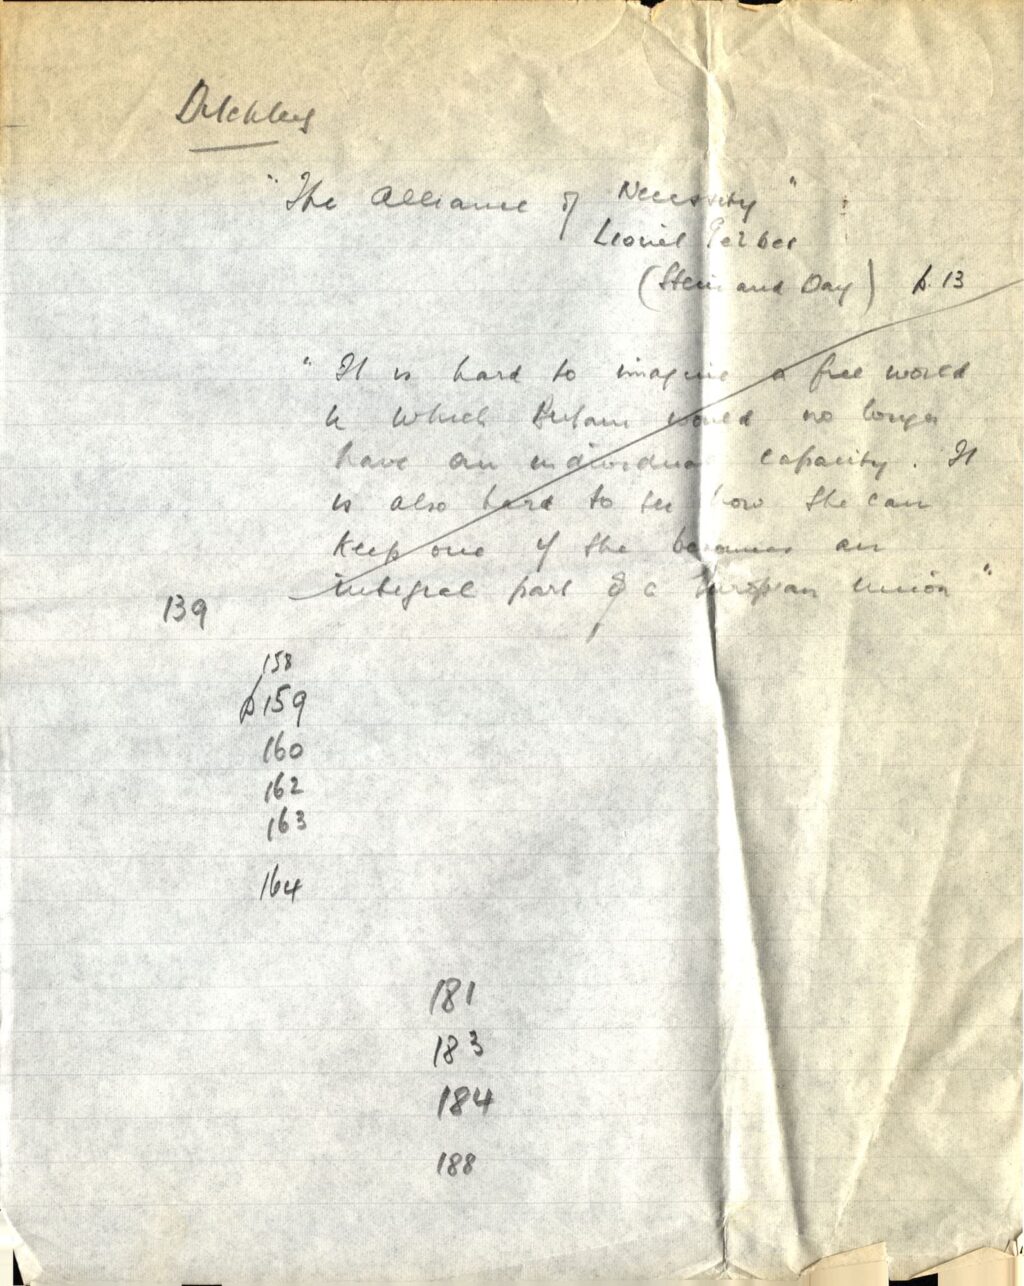 Ditchley
"The Alliance of Necessity"
Lionel Gerber
(Stein and Day) p. 13
"It is hard to imagine a free world
in which Britain would no longer
have an individual capacity. It
is also hard to see how she can
keep one if she becomes an
integral part of a European Union"
139
158
p159
160
162
163
164
181
183
184
188